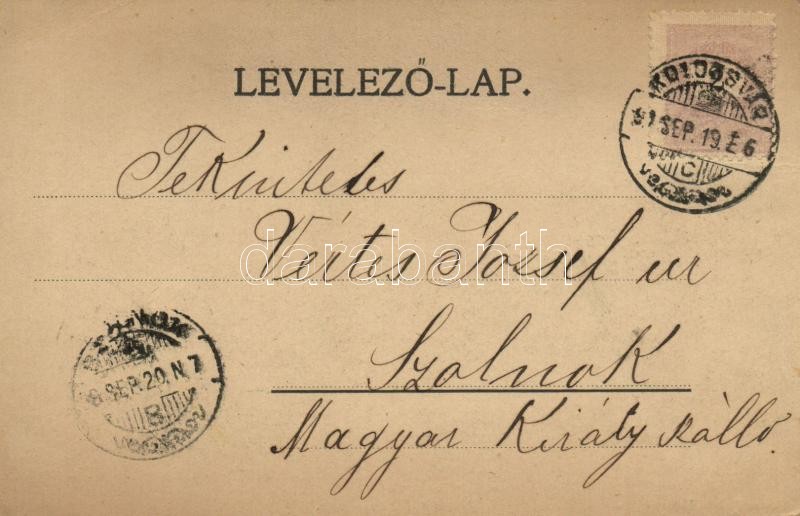 LEVELEZŐ-LAP.
KOLOZSVÁR
SEP. 19. E 6
C
Tekintetes
Vértes József ur
Szolnok
Magyar Király szálló.
SEP. 20. N. 7
B
darabanth